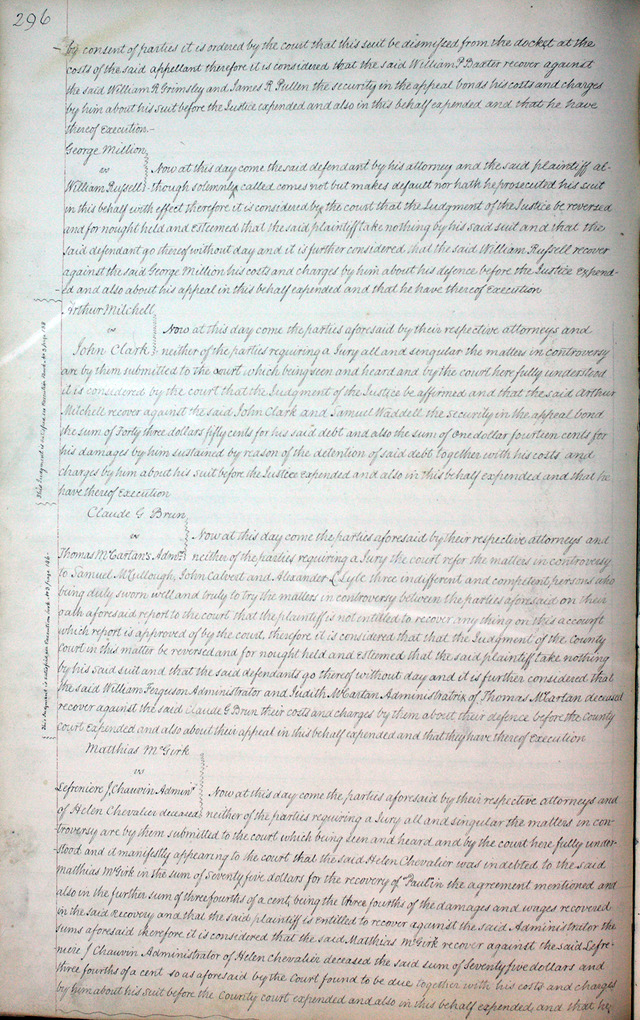 296
by consent of parties it is ordered by the court that this suit be dismissed from the docket at the
costs of the said appellant therefore it is considered that the said William P Baxter recover against
the said William R Grimsley and James R Pullen the security in the appeal bonds his costs and charges
by him about his suit before the Justice expended and also in this behalf expended and that he have
thereof Execution.-
George Million
vs Now at this day come the said defendant by his attorney and the said plaintiff al-
William Russell though solemnly called comes not but makes default nor hath he prosecuted his suit
in this behalf with effect therefore it is considered by the court that the Judgment of the Justice be reversed
and for nought held and esteemed that the said plaintiff take nothing by his said suit and that the
said defendant go thereof without day and it is further considered that the said William Russell recover
against the said George Million his costs and charges by him about his defence before the Justice expend-
ed and also about his appeal in this behalf expended and that he have thereof Execution
Arthur Mitchell
vs Now at this day come the parties aforesaid by their respective attorneys and
John Clark neither of the parties requiring a Jury all and singular the matters in controversy
are by them submitted to the court which being seen and heard and by the court here fully understood
it is considered by the court that the Judgment of the Justice be affirmed and that the said Arthur
Mitchell recover against the said John Clark and Samuel Waddell the security in the appeal bond
the sum of Forty three dollars fifty cents for his said debt and also the sum of One dollar fourteen cents for
his damages by him sustained by reason of the detention of said debt together with his costs and
charges by him about his suit before the Justice expended and also in this behalf expended and that he
have thereof Execution
This Judgment is satisfied see Execution
Claude G Brun
vs Now at this day come the parties aforesaid by their respective attorneys and
Thomas McCartans Admrs neither of the parties requiring a Jury the court refer the matters in controversy
to Samuel McCullough, John Calvert and Alexander Lyle three indifferent and competent persons who
being duly sworn well and truly to try the matters in controversy between the parties aforesaid on their
oath aforesaid report to the court that the plaintiff is not entitled to recover any thing on this account
which report is approved of by the court, therefore it is considered that that the Judgment of the County
Court in this matter be reversed and for nought held and esteemed that the said plaintiff take nothing
by his said suit and that the said defendants go thereof without day and it is further considered that
the said William Ferguson Administrator and Judith McCartan Administratrix of Thomas McCartan deceased
recover against the said Claude G Brun their costs and charges by them about their defence before the County
Court expended and also about their appeal in this behalf expended and that they have thereof Execution
This Judgment is satisfied see Execution
Matthias McGirk
vs
Lefroniere J, Chauvin Adminr Now at this day come the parties aforesaid by their respective attorneys and
of Helen Chevalier deceased neither of the parties requiring a Jury all and singular the matters in con-
troversy are by them submitted to the court which being seen and heard and by the court here fully under-
stood and it manifestly appearing to the court that the said Helen Chevalier was indebted to the said
Matthias McGirk in the sum of Seventy five dollars for the recovery of Paul in the agreement mentioned and
also in the further sum of three fourths of a cent, being the three fourths of the damages and wages recovered
in the said Recovery and that the said plaintiff is entitled to recover against the said Administrator the
sums aforesaid therefore it is considered that the said Matthias McGirk recover against the said Lefro-
niere J Chauvin Administrator of Helen Chevalier deceased the said sum of Seventy five dollars and
three fourths of a cent so as aforesaid by the Court found to be due together with his costs and charges
by him about his suit before the County court expended and also in this behalf expended, and that he